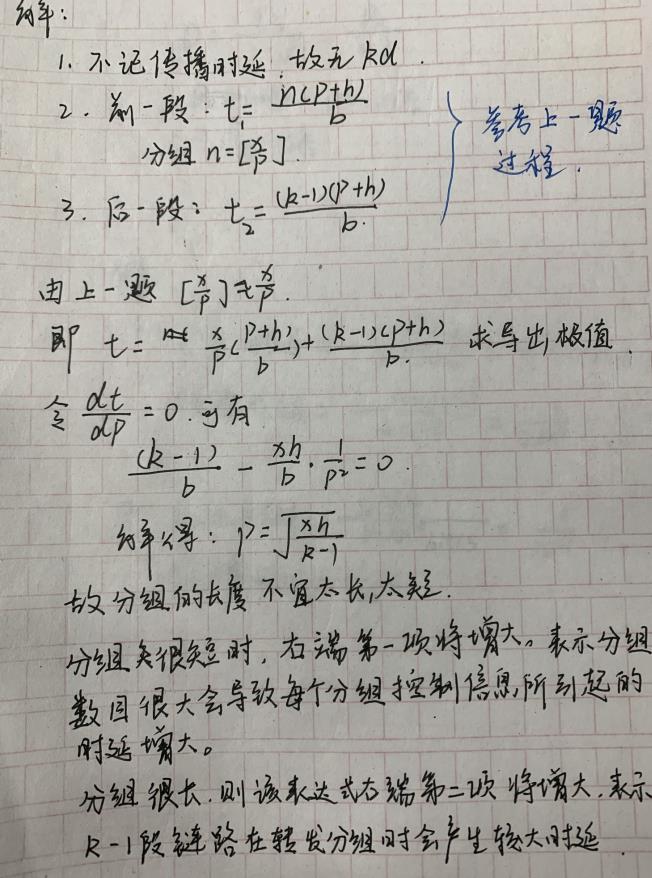 解:
1. 不记传播时延,故无 kd.
2. 前一段: t₁ = n(P+h)/b
分组 n=[x/P].
3. 后一段: t₂ = (k-1)(P+h)/b.
参考上一题
过程.
由上一题 [x/P]≈x/P.
即 t = x/P((P+h)/b)+(k-1)(P+h)/b. 求导出极值.
令 dt/dP = 0. 可有
(k-1)/b - xh/b · 1/P² = 0.
解得: P=√(xh/(k-1))
故分组的长度不宜太长,太短.
分组很短时,右端第一项将增大。表示分组
数目很大会导致每个分组控制信息所引起的
时延增大。
分组很长.则该表达式右端第二项将增大.表示
k-1段链路在转发分组时会产生较大时延